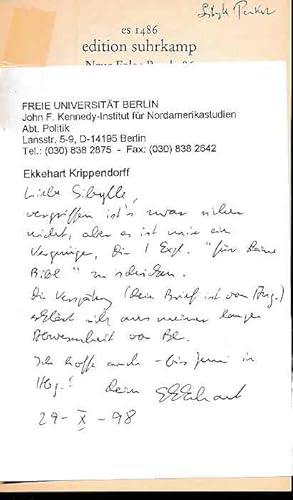 es 1486
edition suhrkamp
FREIE UNIVERSITÄT BERLIN
John F. Kennedy-Institut für Nordamerikastudien
Abt. Politik
Lansstr. 5-9, D-14195 Berlin
Tel.: (030) 838 2875 - Fax: (030) 838 2642
Ekkehart Krippendorff
Liebe Sibylle,
vergriffen ist's zwar sicher
nicht, aber es ist mir ein
Vergnügen, Dir 1 Expl. "für Deine
Bibl" zu schicken.
Die Verspätung (Dein Brief ist vom Aug.)
erklärt sich aus meiner langen
Abwesenheit von Bl.
Ich hoffe auch - bis in
Hbg!
Dein Ekkehart
29-X-98